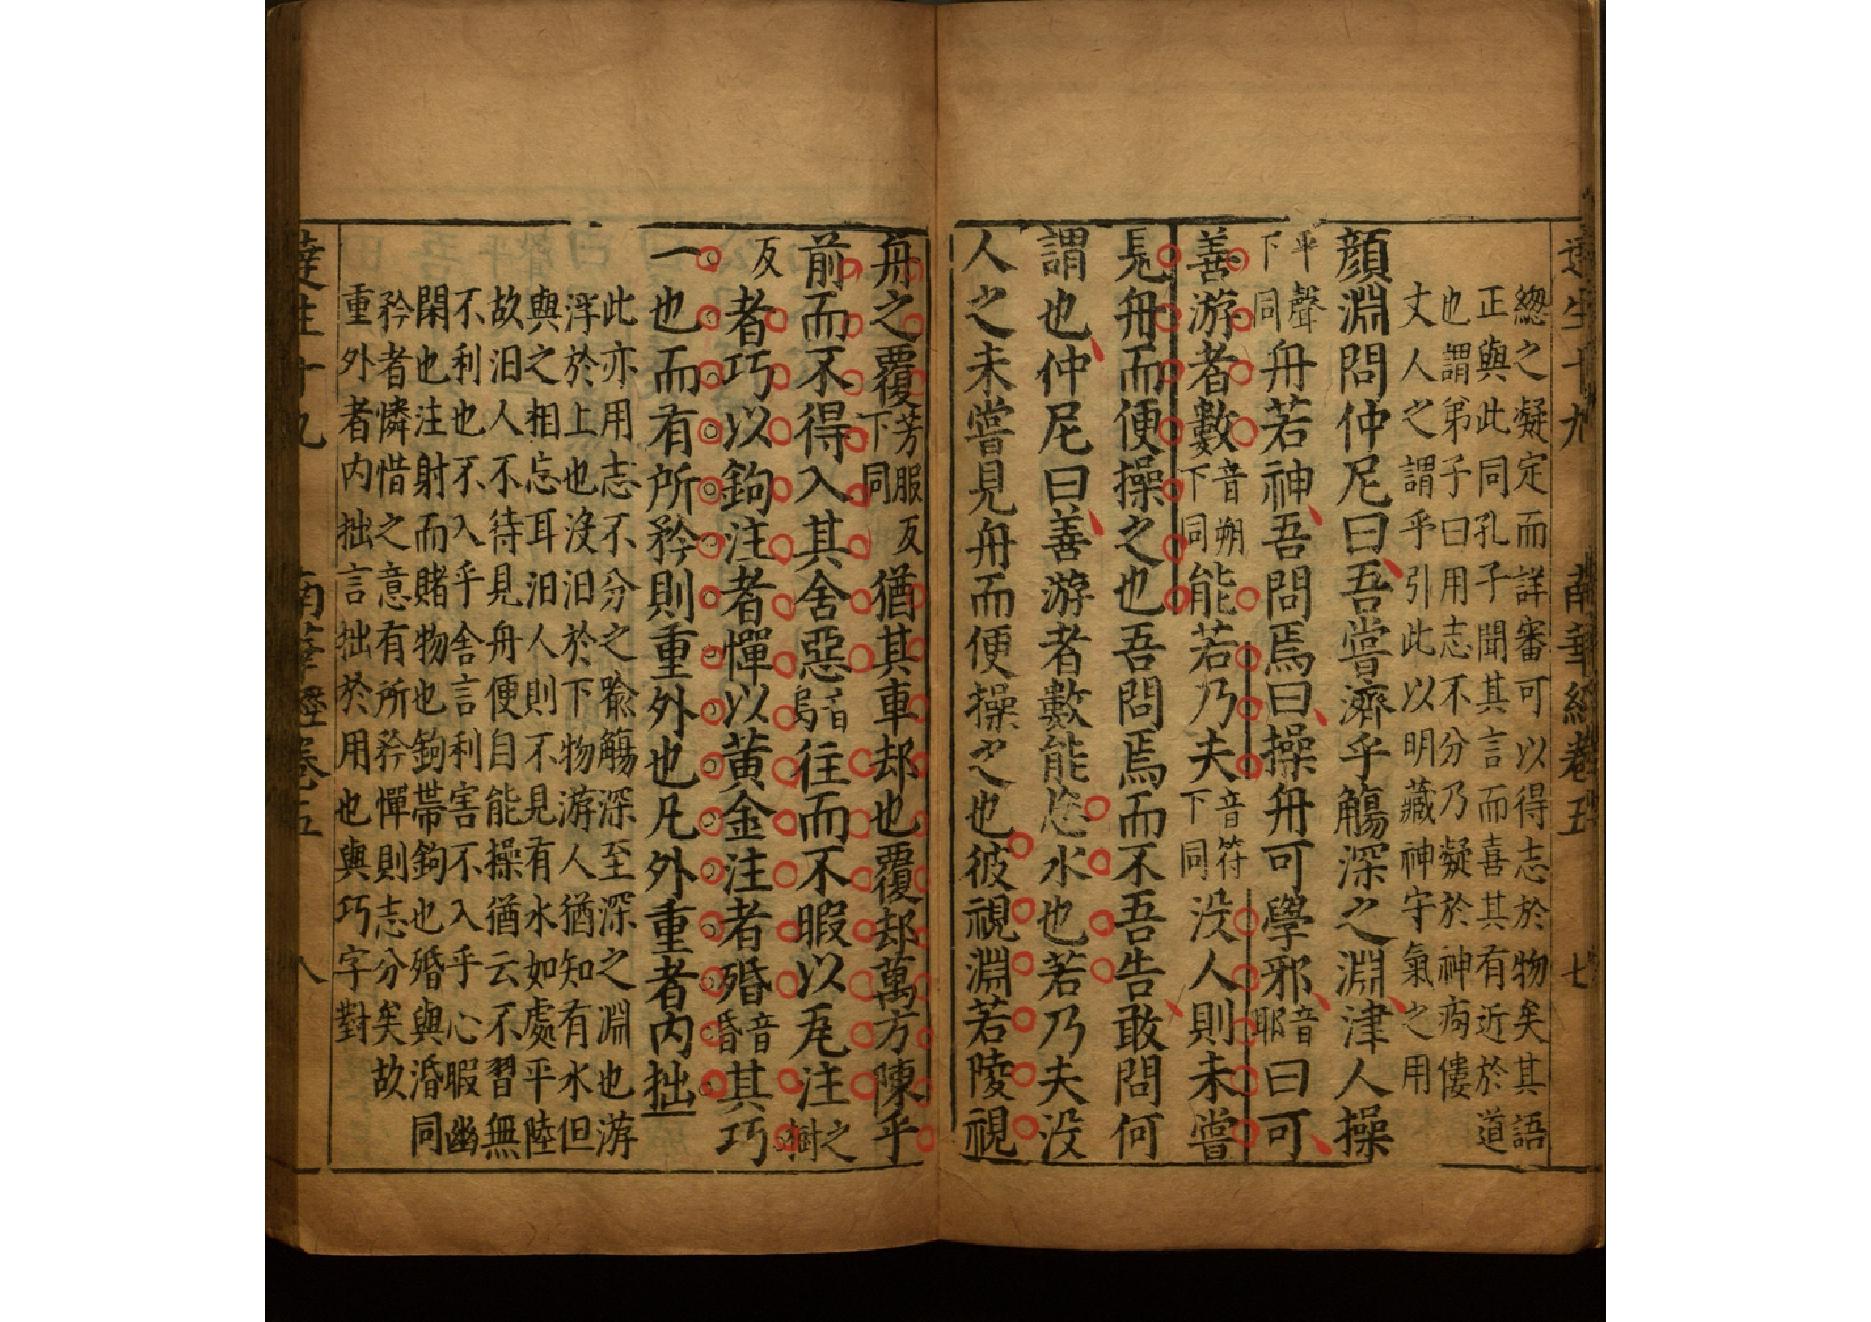 達生十九 南華經卷五 七
緫之凝定而詳審可以得志於物矣其語
正與此同孔子聞其言而喜其有近於道
也謂弟子曰用志不分乃凝於神痀僂
丈人之謂乎引此以明藏神守氣之用
顔淵問仲尼曰吾嘗濟乎觴深之淵津人操
平聲下同舟若神吾問焉曰操舟可學邪音耶曰可
善游者數音朔下同能若乃夫音符下同没人則未嘗
見舟而便操之也吾問焉而不吾告敢問何
謂也仲尼曰善游者數能忘水也若乃夫没
人之未嘗見舟而便操之也彼視淵若陵視
舟之覆芳服反下同猶其車却也覆却萬方陳乎
前而不得入其舍惡音烏往而不暇以瓦注之樹
反者巧以鉤注者憚以黄金注者殙音昏其巧
一也而有所矜則重外也凡外重者内拙
此亦用志不分之喩觴深至深之淵也游
浮於上也沒汨於下物游人猶知有水但
與之相忘耳汨人則不見有水如處平陸
故汨人不待見舟便自能操猶云不習無
不利也不入乎舍言利害不入乎心暇幽
閑也注射而賭物也鉤帶鉤也殙與涽同
矜者憐惜之意有所矜憚則志分矣故
重外者内拙言拙於用也與巧字對
達生十九 南華經卷五 八